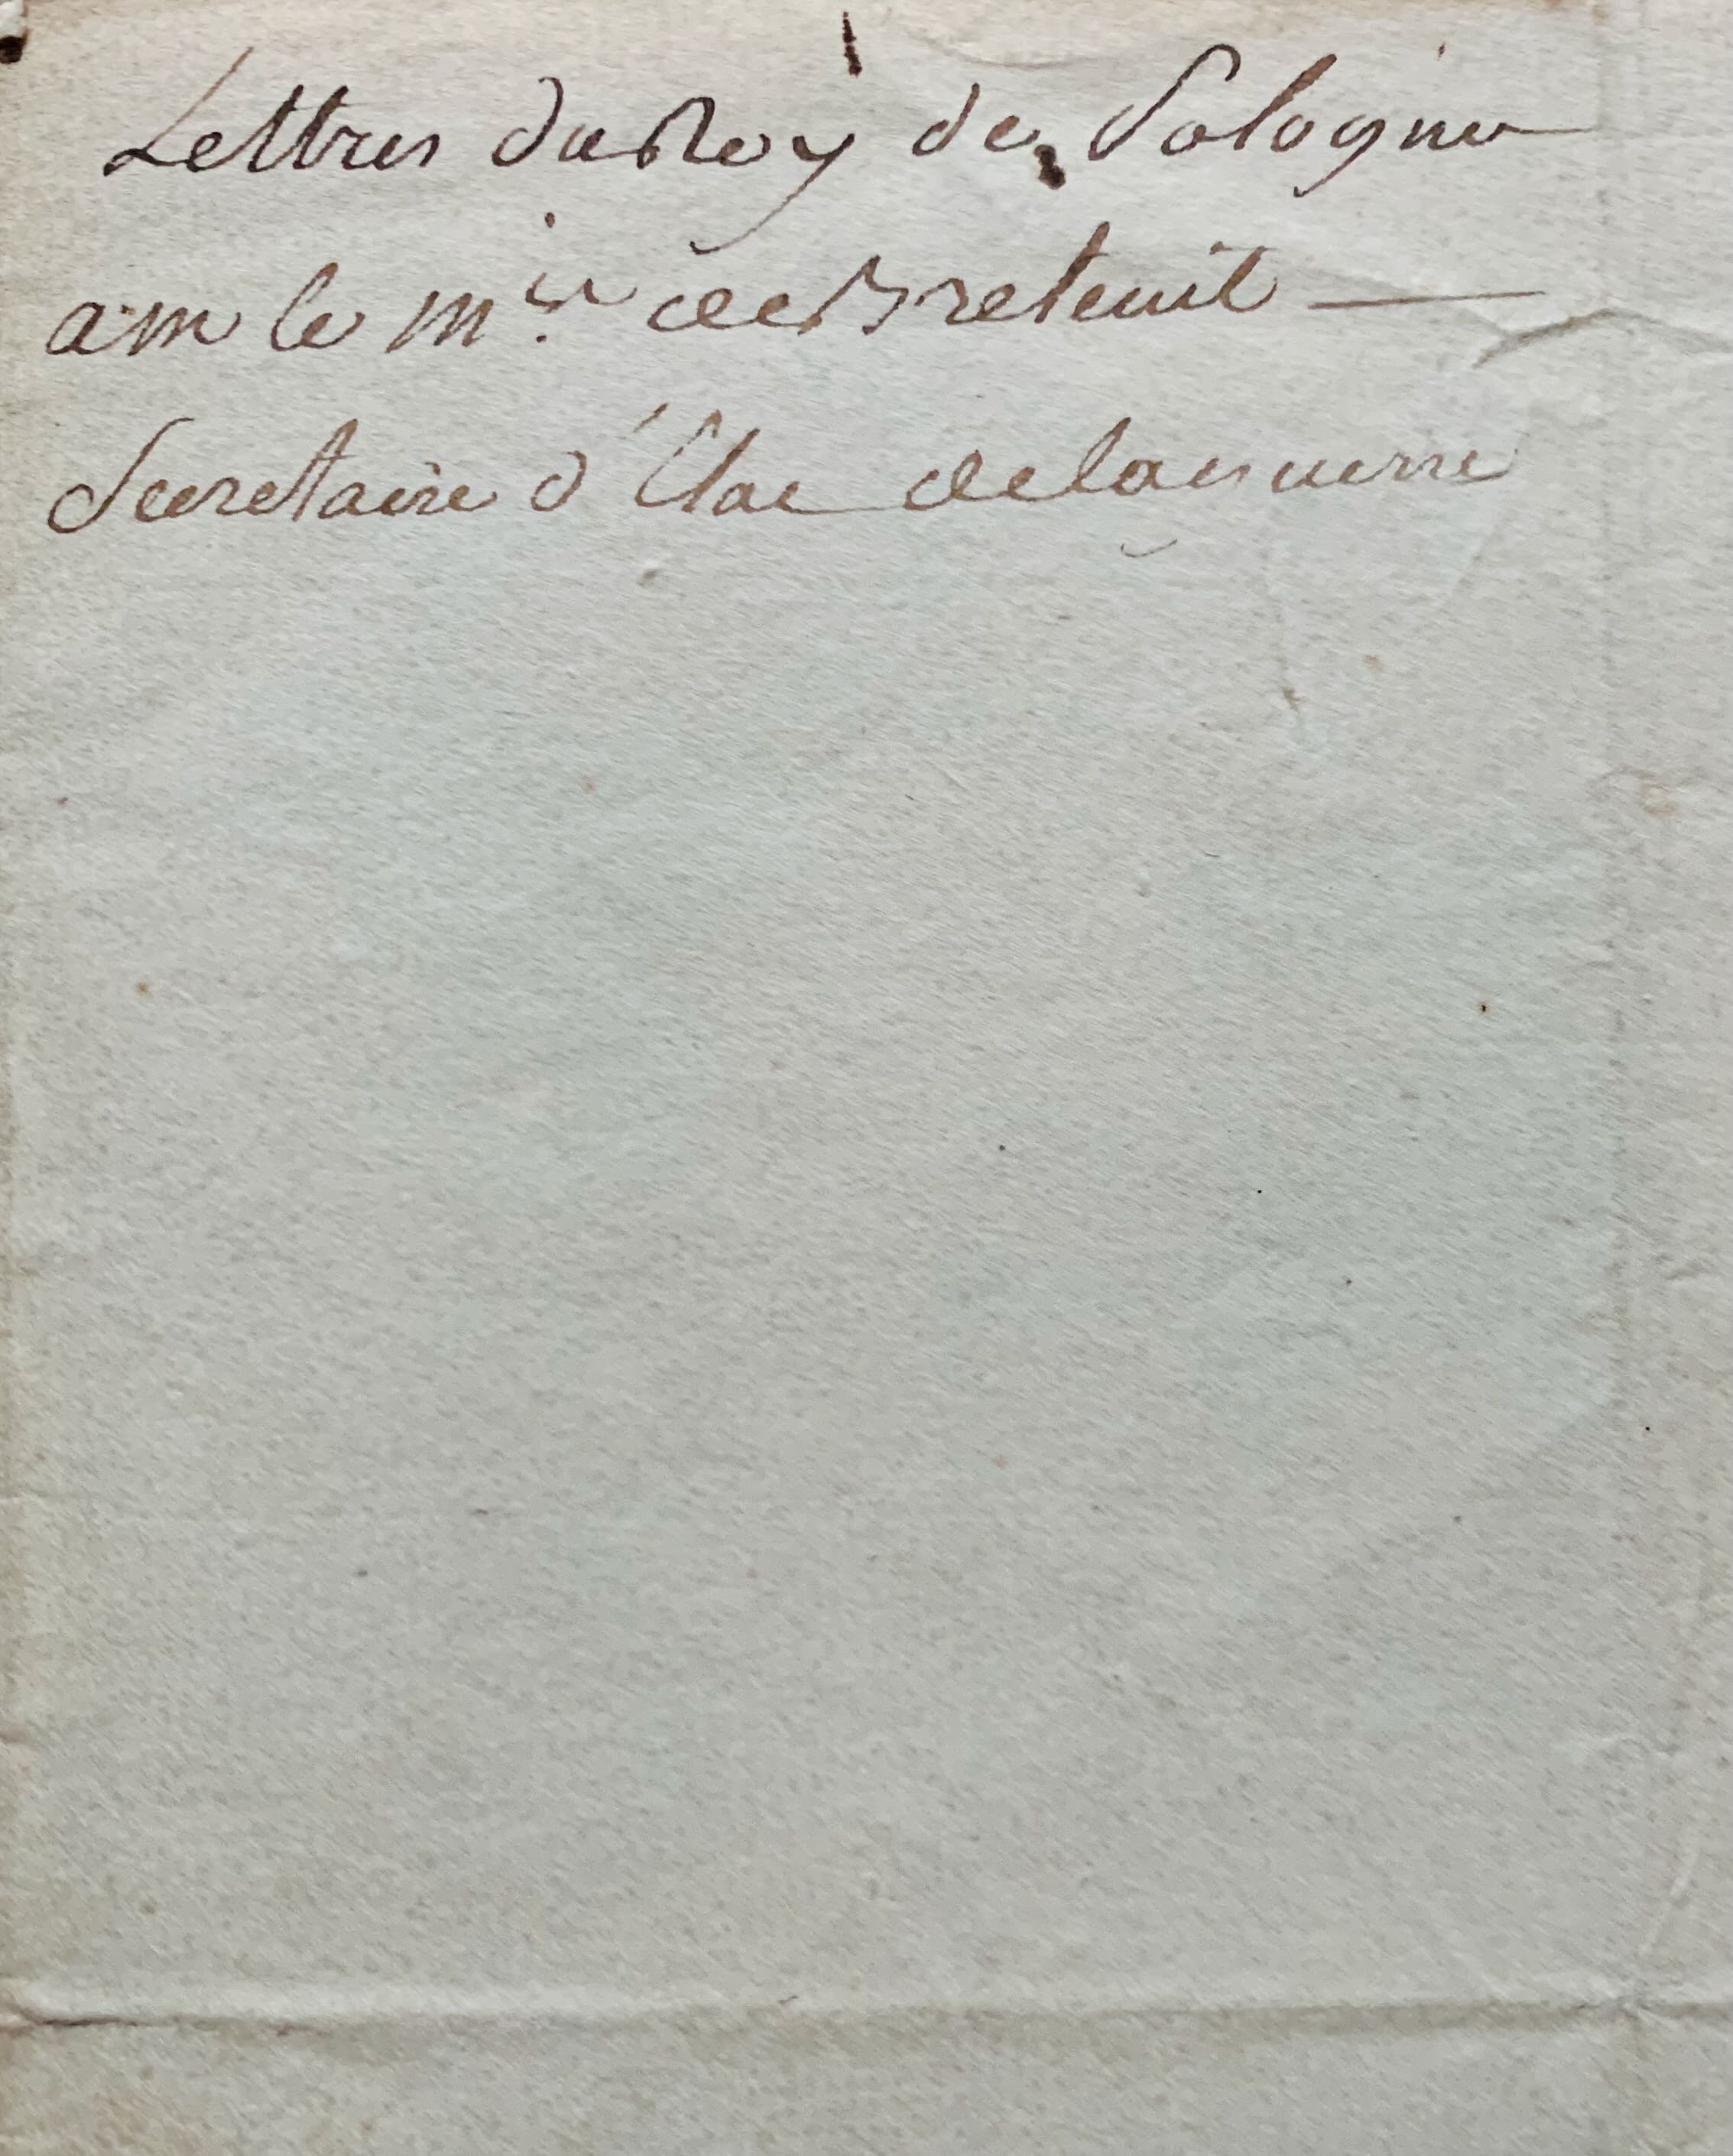 Lettres du Roy de Pologne
a m le m.is de Breteuil —
Secretaire d'Etat de la guerre